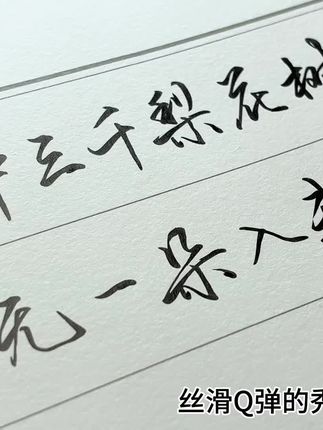 三千梨花树
无一朵入
丝滑Q弹的秀